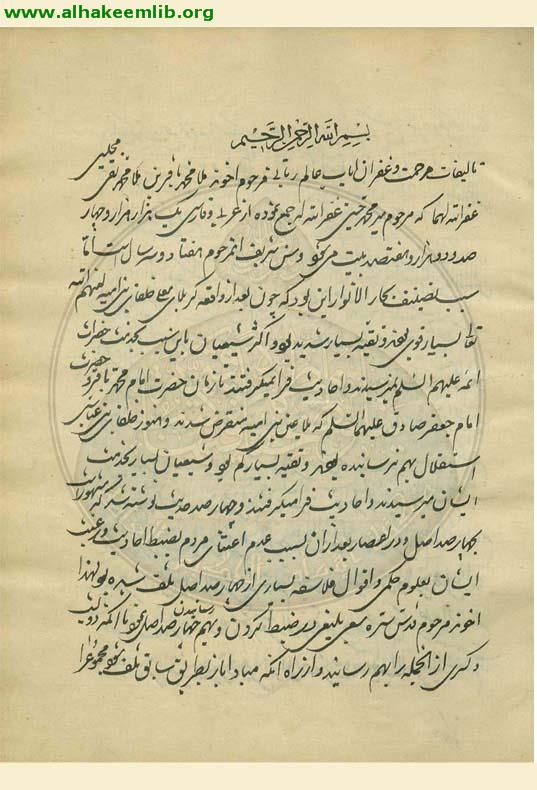 www.alhakeemlib.org
بسم الله الرحمن الرحیم
تالیفات مرحمت و غفران مآب عالم ربانی مرحوم اخوند ملا محمد باقر بن ملا محمد تقی مجلسی
غفر الله لهما که مرحوم میر محمد حسین غفر الله له جمع نموده از عربی و فارسی یک هزار هزار و چهار
صد و دو هزار و هفتصد بیت می شود و سن شریف انمرحوم هفتاد و سه سال است اما
سبب تصنیف بحار الانوار این بود که چون بعد از واقعه کربلای معلی خلفای بنی امیه لعنهم الله
بسیار قوی بودند و تقیه بسیار شدید بود و اکثر شیعیان باین سبب بخدمت حضرات
ائمه علیهم السلم نمیرسیدند و احادیث فرا نمیگرفتند تا زمان حضرت امام محمد باقر و حضرت
امام جعفر صادق علیهما السلم که ملاعین بنی امیه منقرض شدند و هنوز خلفای بنی عباس
استقلال بهم نرسانیده بودند و تقیه بسیار کم بود و شیعیان بسیار بخدمت
ایشان میرسیدند و احادیث فرا میگرفتند و چهار صد حدیث نوشته شد که مشهور است
بچهار صد اصل و در اعصار بعد از ان بسبب عدم اعتنای مردم بضبط احادیث و رغبت
ایشان بعلوم حکمی و اقوال فلاسفه بسیاری از چهار صد اصل تلف شده بود لهذا
اخوند مرحوم قدس سره سعی بلیغی در ضبط کردن و بهم رسانیدن چهار صد اصل نمود تا آنکه دویست
دیگری از انجمله را بهم رسانید و از راه آنکه مبادا باز بطریق سابق تلف شود مجموع را